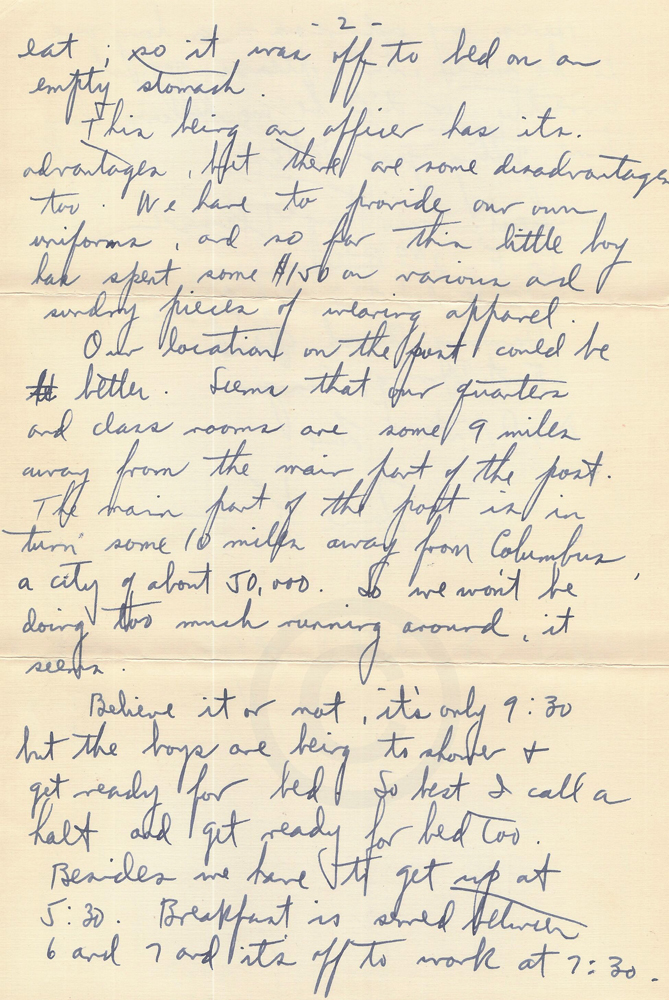 - 2 -
eat ; so it was off to bed on an
empty stomach .
This being an officer has its .
advantages , but there are some disadvantages
too . We have to provide our own
uniforms , and so far this little boy
has spent some $150 on various and
sundry pieces of wearing apparel .
Our location on the post could be
better . Seems that our quarters
and class rooms are some 9 miles
away from the main part of the post .
The main part of the post is in
turn some 10 miles away from Columbus ,
a city of about 50,000 . So we won't be
doing too much running around , it
seems .
Believe it or not , it's only 9:30
but the boys are being to shower +
get ready for bed . So best I call a
halt and get ready for bed too .
Besides we have to get up at
5:30 . Breakfast is served between
6 and 7 and it's off to work at 7:30 .